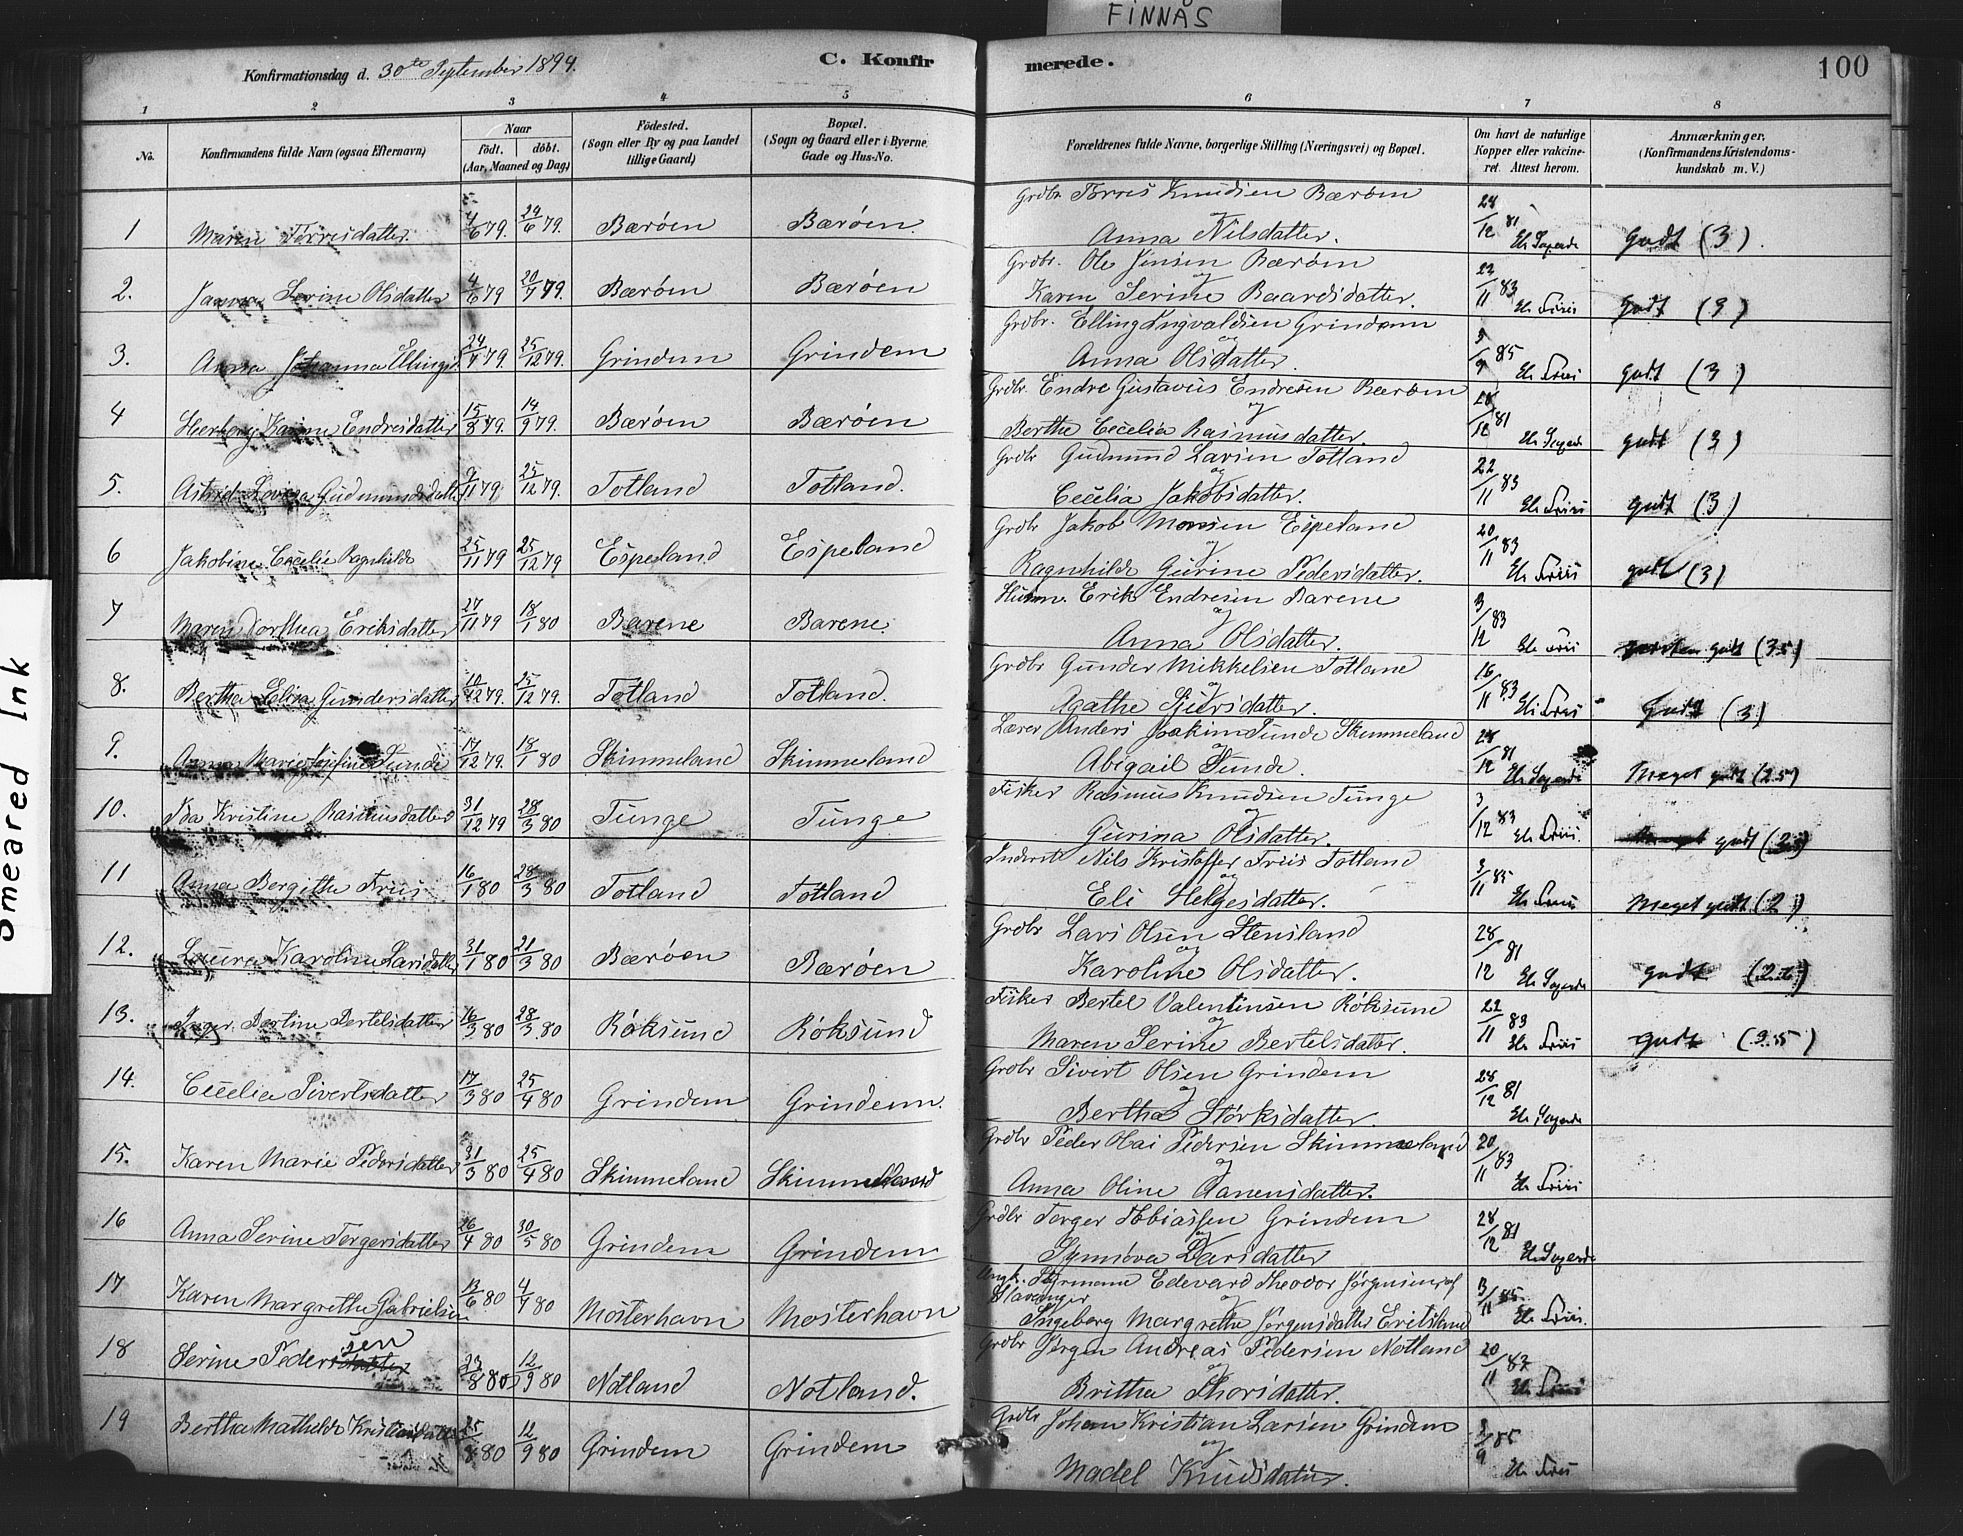 FINNÅS
Konfirmationsdag d. 30te September 1894.
C. Konfirmerede.
100
1 2 3 4 5 6 7 8
No.
Konfirmandens fulde Navn (ogsaa Efternavn)
Naar
födt. döbt.
(Aar, Maaned og Dag)
Födested.
(Sogn eller By og paa Landet tillige Gaard)
Bopæl.
(Sogn og Gaard eller i Byerne Gade og Hus-No.
Forældrenes fulde Navne, borgerlige Stilling (Næringsvei) og Bopæl.
Om havt de naturlige Kopper eller vakcineret. Attest herom.
Anmærkninger.
(Konfirmandens Kristendomskundskab m. V.)
1 Maren Torresdatter 4/6 79. 29/6 79. Bærøen Bærøen. Grdbr Torres Knudsen Bærøen og Anna Nilsdatter. 28/12 81 Godt (3).
2. Serine Olsdatter 4/6 79 20/7 79. Bærøen Bærøen Grdbr. Ole Jensen Bærøen og Karen Serine Baardsdatter. 22/11 83 Friis godt (3)
3. Anna Johanna Ellings 79 25/12 79. Grindem Grindem Grdbr. Elling Ingvaldsen Grindem og Anna Olsdatter. 3/9 85 Friis godt (3)
4 Herborg Karine Endresdatter 15/8 79. 14/9 79. Bærøen Bærøen Grdbr. Endre Gustavus Endresen Bærøen og Berthe Cecelia Rasmusdatter. 28/12 81 godt (3)
5. Astrid Lovisa Gudmundsdatt 9/11 79 25/12 79. Totland Totland. Grdbr Gudmund Larsen Totland og Cecelia Jakobsdatter. 22/11 83 Friis godt (3)
6 Jakobine Cecelie Ragnhilde 25/11 79 25/12 79 Espeland Espeland Grdbr Jakob Monsen Espeland og Ragnhilde Gurine Pedersdatter. 20/11 83 Friis godt (3)
7 Maren Dorthea Eriksdatter 27/11 79 18/1 80 Barene Barene. Husm. Erik Endresen Barene og Anna Olsdatter. 3/12 83 Friis godt (3.5)
8. Bertha Elisa Gundersdatter 10/12 79. 25/12 79. Totland Totland. Grdbr Gunder Mikkelsen Totland og Agathe Sjursdatter. 16/11 83 Friis Godt (3)
9. Anna Marie Josefine Tunde 17/12 79. 18/1 80 Skimmeland Skimmeland Lærer Anders Joakim Tunde Skimmeland og Abigail Tunde. 28/12 81 Meget godt (2.5)
10. Ida Kristine Rasmusdatter 31/12 79 28/3 80 Tunge Tunge Fisker Rasmus Knudsen Tunge og Gurina Olsdatter. 3/12 83 Friis. godt
11 Anna Bergitha Friis 16/1 80 28/3 80 Totland Totland Inderst Nils Kristoffer Friis Totland og Eli Helgesdatter. 3/11 85 Friis Meget godt (2)
12. Laura Karoline Larsdatter 31/1 80 21/3 80 Bærøen Bærøen Grdbr Lars Olsen Stensland og Karoline Olsdatter. 28/12 81 godt
13. Inger Bertine Bertelsdatter 16/3 80 28/3 80 Røksund Røksund Fisker Bertel Valentinsen Røksund og Maren Serine Bertelsdatter. 22/11 83 Friis godt
14. Cecelia Sivertsdatter 17/3 80 25/4 80 Grindem Grindem. Grdbr Sivert Olsen Grindem og Bertha Størksdatter. 28/12 81
15. Karen Marie Pedersdatter 31/3 80 25/4 80 Skimmeland Skimmeland Grdbr Peder Olai Pedersen Skimmeland og Anna Oline Aanensdatter. 20/11 83 Friis
16 Anna Serine Torgersdatter 26/4 80 30/5 80 Grindem Grindem Grdbr Torger Tobiassen Grindem og Synnøva Larsdatter 28/12 81
17 Karen Margrethe Gabrielsen 13/6 80 4/7 80 Mosterhavn Mosterhavn Styrmann Edevard Theodor Jørgensen af Stavanger og Ingeborg Margrethe Jørgensdatter 3/11 85. Friis.
18 Serine Pedersen 80 12/9 80 Notland Notland. Grdbr Jørgen Andreas Pedersen Notland og Britha Thorsdatter. 20/11
19 Bertha Mathilde 25/8 80 12/9 80 Grindem Grindem Grdbr Johan Kristian Larsen Grindem og Madel Knudsdatter. 85 Friis
Smeared Ink